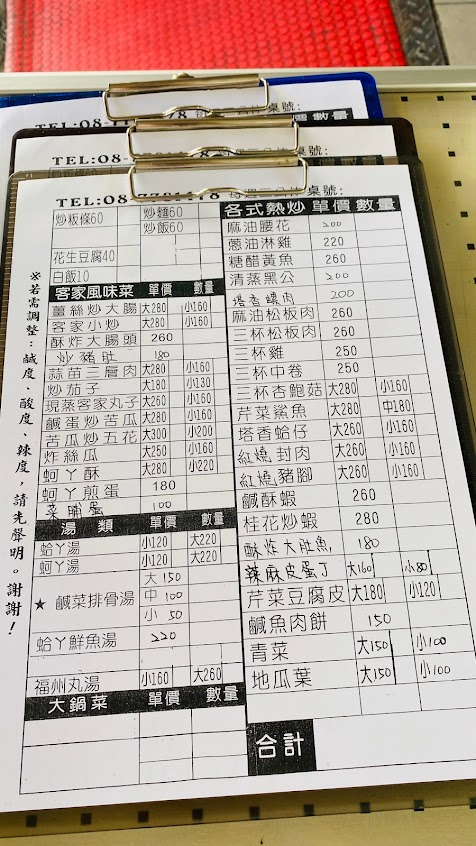 TEL:08-
TEL:08-
TEL:08-7
桌號:
炒粄條60 炒麵60
炒飯60
花生豆腐40
白飯10
客家風味菜 單價 數量
薑絲炒大腸 大280 小160
客家小炒 大280 小160
酥炸大腸頭 260
炒豬肚 180
蒜苗三層肉 大280 小160
炒茄子 大180 小130
現蒸客家丸子 大260 小160
鹹蛋炒苦瓜 大280 小160
苦瓜炒五花 大300 小200
炸絲瓜 大250 小160
蚵丫酥 大280 小220
蚵丫煎蛋 180
菜脯蛋 100
湯 類 單價 數量
蛤丫湯 小120 大220
蚵丫湯 小120 大220
大 150
★ 鹹菜排骨湯 中 100
小 50
蛤丫鮮魚湯 220
福州丸湯 小160 大260
大鍋菜 單價 數量
各式熱炒 單價 數量
麻油腰花 200
蔥油淋雞 220
糖醋黃魚 260
清蒸黑公 200
塔香螺肉 200
麻油松板肉 260
三杯松板肉 260
三杯雞 250
三杯中卷 250
三杯杏鮑菇 大260 小160
芹菜鯊魚 大280 中180
塔香蛤仔 大260 小160
紅燒封肉 大260 小160
紅燒豬腳 大260 小160
鹹酥蝦 260
桂花炒蝦 280
酥炸大肚魚 180
辣麻皮蛋丁 大160 小80
芹菜豆腐皮 大180 小120
鹹魚肉餅 150
青菜 大150 小100
地瓜葉 大150 小100
合計
※若需調整:鹹度、酸度、辣度,請先聲明。謝謝!